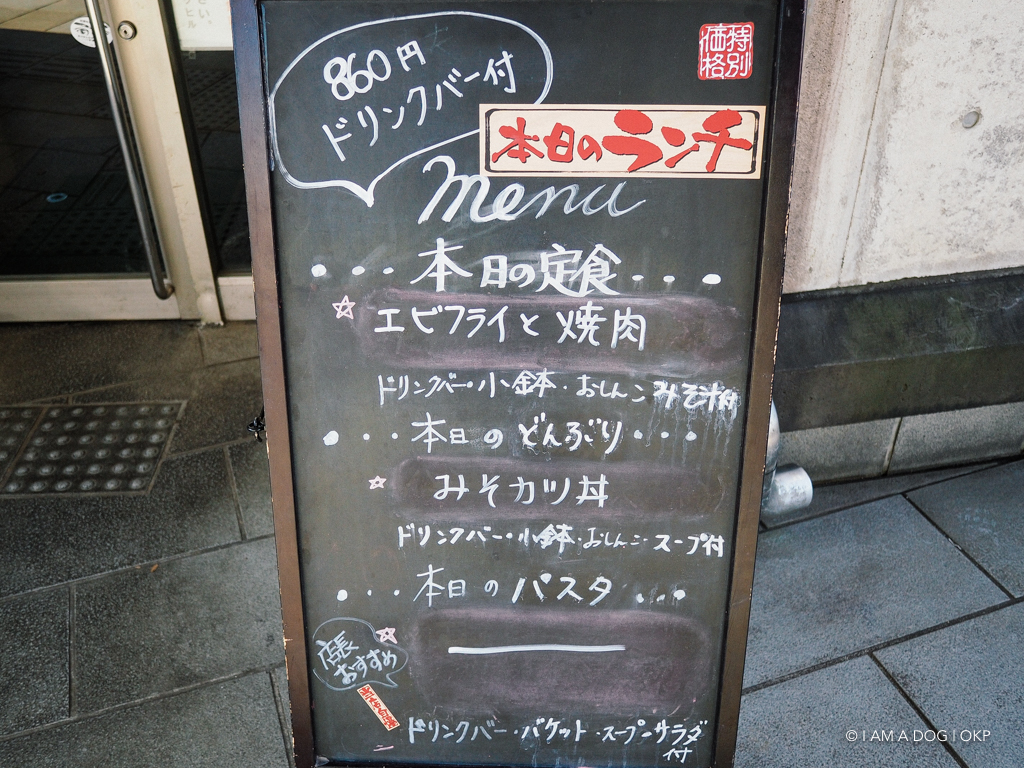 860円
ドリンクバー付
特別
価格
本日のランチ
menu
本日の定食
エビフライと焼肉
ドリンクバー・小鉢・おしんこ みそ汁付
本日のどんぶり
みそカツ丼
ドリンクバー・小鉢・おしんこ・スープ付
本日のパスタ
店長
おすすめ
ドリンクバー・バケット・スープ・サラダ
付
© I AM A DOG | OKP